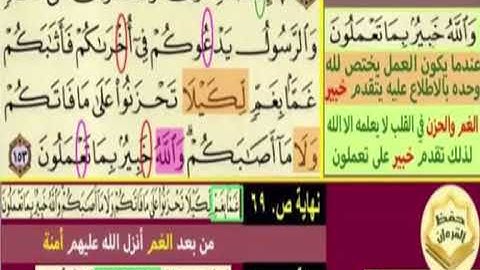 وَالرَّسُولُ يَدْعُوكُمْ فِي أُخْرَىٰكُمْ فَأَثَٰبَكُمْ
غَمًّا بِغَمٍّ لِّكَيْلَا تَحْزَنُوا عَلَىٰ مَا فَاتَكُمْ
وَلَا مَا أَصَٰبَكُمْ وَاللَّهُ خَبِيرٌ بِمَا تَعْمَلُونَ ١٥٣
وَاللَّهُ خَبِيرٌ بِمَا تَعْمَلُونَ
عندما يكون العمل يختص لله
وحده بالاطلاع عليه يتقدم خبير
الغم والحزن في القلب لا يعلمه الا الله
لذلك تقدم خبير على تعملون
نهاية ص. ٦٩
غَمًّا بِغَمٍّ لِكَيْلَا تَحْزَنُوا عَلَى مَا فَاتَكُمْ وَلَا مَا أَصَابَكُمْ وَاللَّهُ خَبِيرٌ بِمَا تَعْمَلُونَ
من بعد الغم أنزل الله عليهم أمنة
حفظ
القرءان